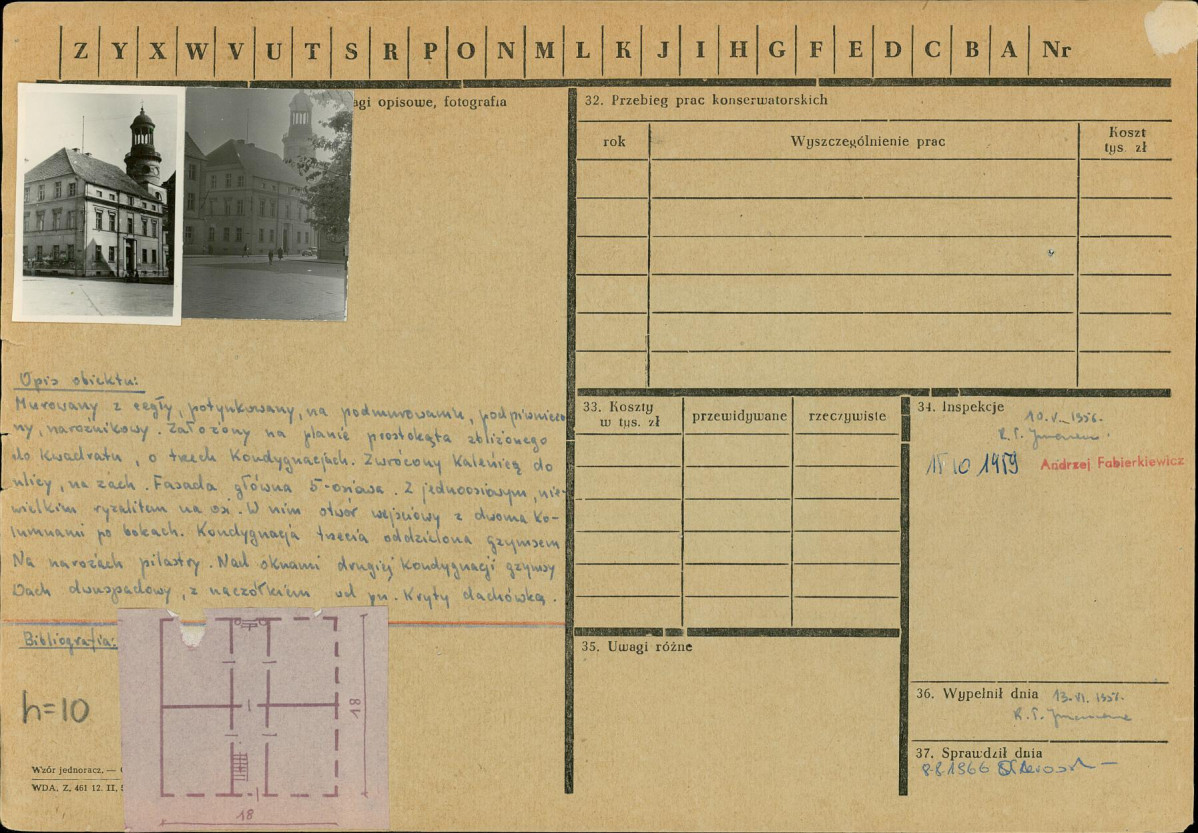 Z Y X W V U T S R P O N M L K J I H G F E D C B A Nr
agi opisowe, fotografia
Opis obiektu:
Murowany z cegły, potynkowany, na podmurowaniu, podpiwniczo
ny, narożnikowy. Założony na planie prostokąta zbliżonego
do kwadratu, o trzech kondygnacjach. Zwrócony kalenicą do
ulicy, na zach. Fasada główna 5-osiowa. Z jednoosiowym, nie-
wielkim ryzalitem na osi. W nim otwór wejściowy z dwoma ko-
lumnami po bokach. Kondygnacja trzecia oddzielona gzymsem
Na narożach pilastry. Nad oknami drugiej kondygnacji gzymsy
Dach dwuspadowy, z naczółkiem od pn. Kryty dachówką.
Bibliografia:
h=10
18
18
Wzór jednoracz. —
WDA. Z. 461 12. II,
32. Przebieg prac konserwatorskich
rok
Wyszczególnienie prac
Koszt
tys. zł
33. Koszty
w tys. zł
przewidywane
rzeczywiste
34. Inspekcje
10.V.1956.
R. T.
15 10 1959
Andrzej Fabierkiewicz
35. Uwagi różne
36. Wypełnił dnia
13.VI.1956.
R. T.
37. Sprawdził dnia
8.8.1966